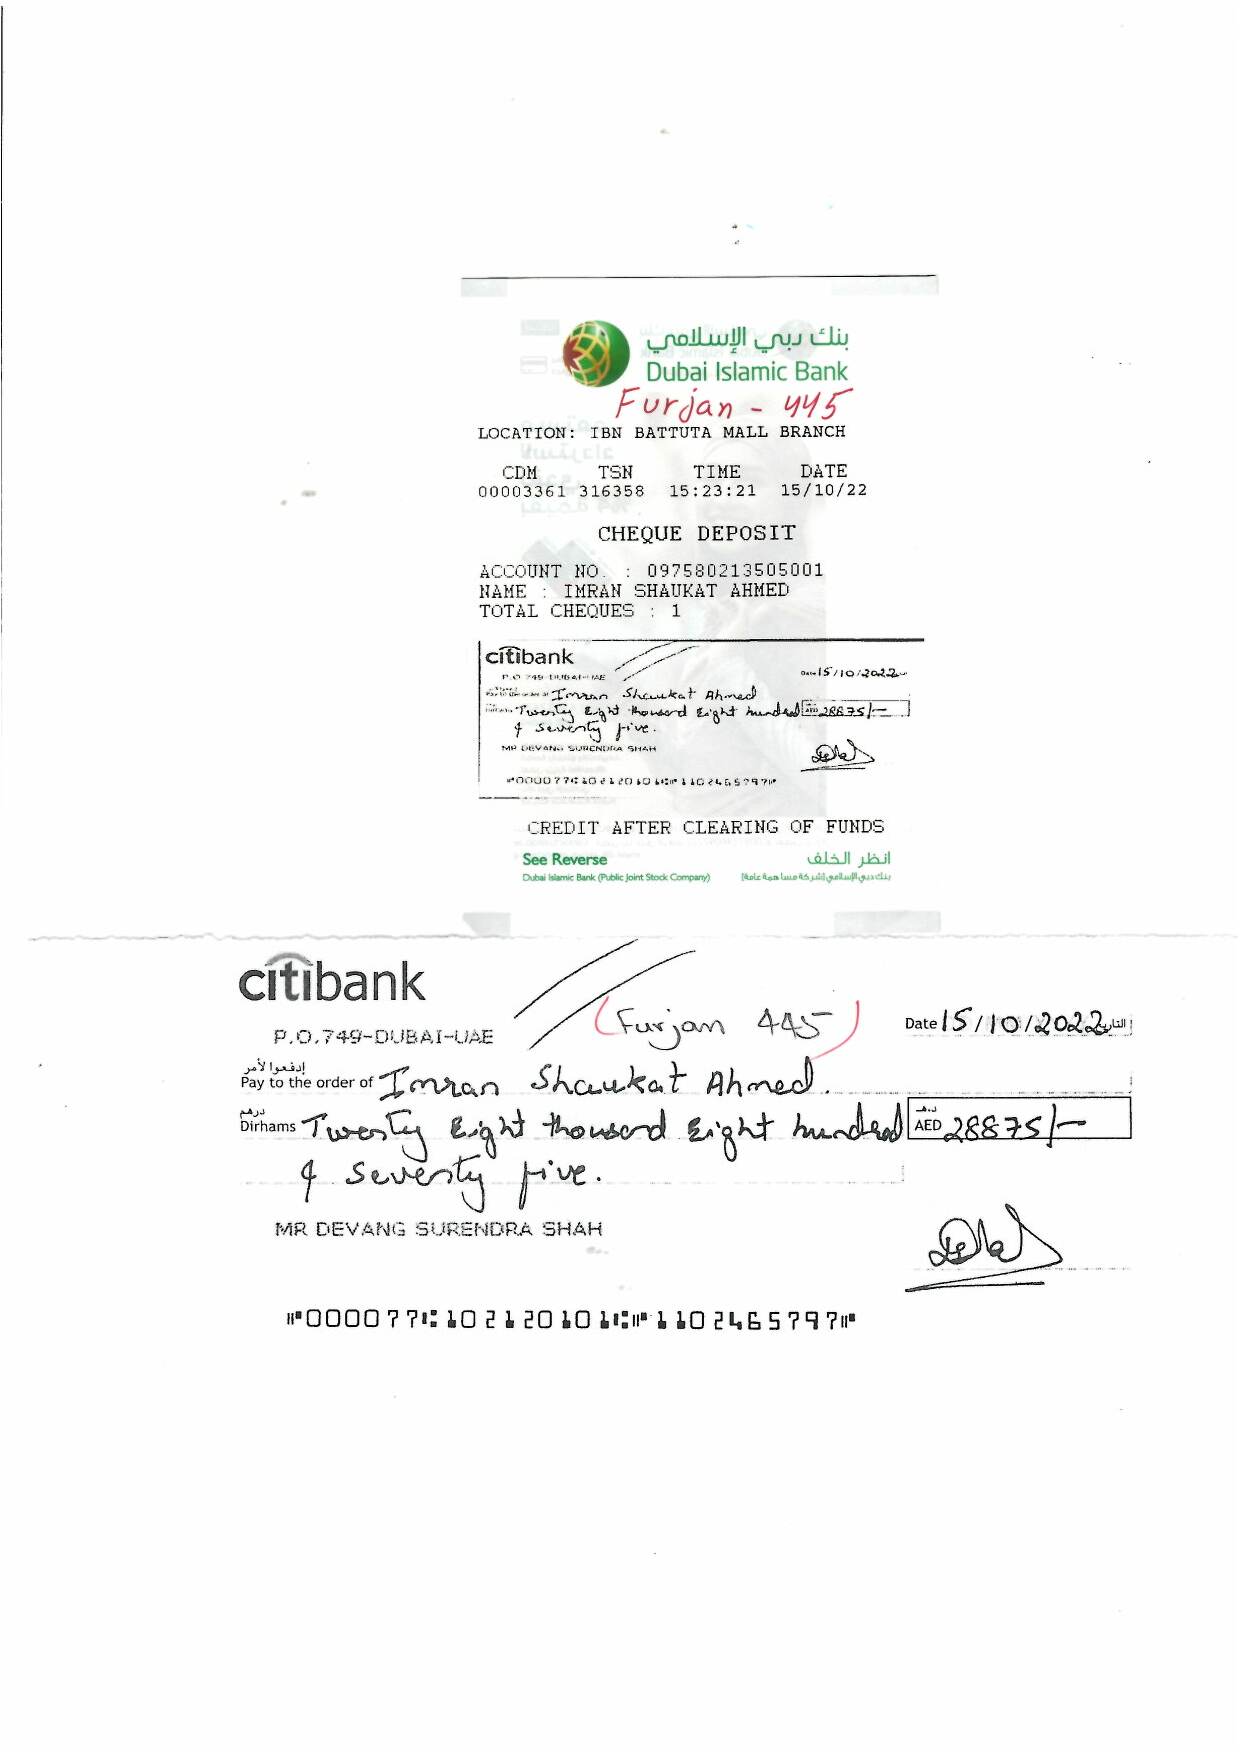 بنك دبي الإسلامي
Dubai Islamic Bank
Furjan - 445
LOCATION: IBN BATTUTA MALL BRANCH
CDM TSN TIME DATE
00003361 316358 15:23:21 15/10/22
CHEQUE DEPOSIT
ACCOUNT NO. : 097580213505001
NAME : IMRAN SHAUKAT AHMED
TOTAL CHEQUES : 1
citibank
P.O.749-DUBAI-UAE
Date 15/10/2022
Pay to the order of Imran Shaukat Ahmed
Twenty Eight thousand Eight hundred AED 28875/-
& seventy five.
MR DEVANG SURENDRA SHAH
⑈000077⑆102120101⑆⑈1102465797⑈
CREDIT AFTER CLEARING OF FUNDS
See Reverse انظر الخلف
Dubai Islamic Bank (Public Joint Stock Company) بنك دبي الإسلامي (شركة مساهمة عامة)
citibank
(Furjan 445)
P.O.749-DUBAI-UAE
Date 15/10/2022 التاريخ
إدفعوا لأمر
Pay to the order of Imran Shaukat Ahmed.
درهم
Dirhams Twenty Eight thousand Eight hundred AED 28875/-
& seventy five.
MR DEVANG SURENDRA SHAH
⑈000077⑆102120101⑆⑈1102465797⑈